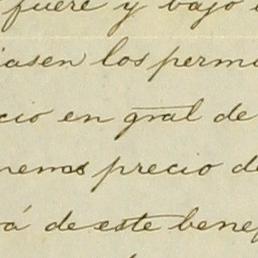 fuere y bajo
iasen los permi
cio en gral de
nemos precio de
á de este bene